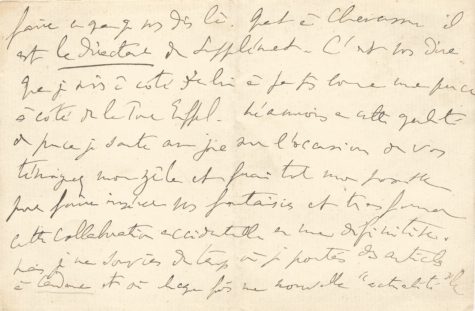 faire ce que je vous dis là. Quant à Chevassu il
est le directeur du Supplément. C'est vous dire
que je suis à côté de lui à peu près comme une puce
à côté de la Tour Eiffel. Néanmoins en cette qualité
de puce je saute avec joie sur l'occasion de vos
témoigner mon zèle et ferai tout mon possible
pour faire insérer vos fantaisies et transformer
cette collaboration accidentelle en une définitive.
mais je me souviens du temps où je portais des articles
à et où chaque fois une nouvelle "actualité"